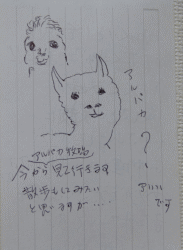 アルパカ?
アルパカ牧場
今から見て行きます
散歩もしてみたい
と思いますが....
です